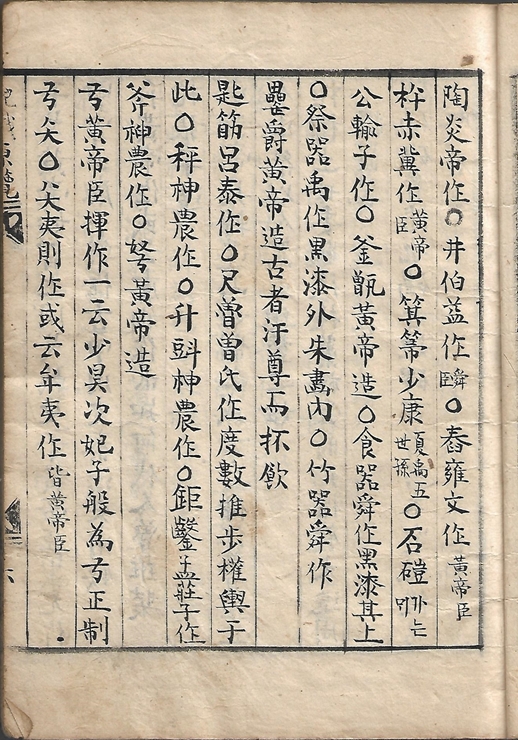 陶炎帝作〇井伯益作舜臣〇舂雍文作黃帝臣
杵赤冀作黃帝臣〇箕箒少康夏禹五世孫〇石磑
公輸子作〇釜甑黃帝造〇食器舜作黑漆其上
〇祭器禹作黑漆外朱畵內〇竹器舜作
罍爵黃帝造古者汙尊而抔飲
匙筯呂泰作〇尺魯曾氏作度數推步權輿于
此〇秤神農作〇升㪷神農作〇鉅鑿孟莊子作
斧神農作〇弩黃帝造
弓黃帝臣揮作一云少昊次妃子般為弓正制
弓矢〇矢夷則作或云牟夷作皆黃帝臣
六